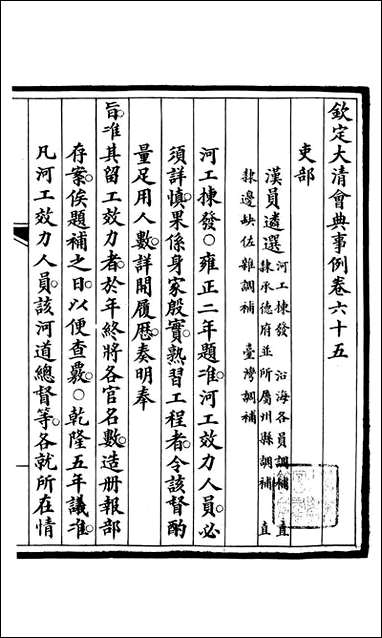 欽定大清會典事例卷六十五
吏部
漢員遴選 河工揀發 沿海各員調補 直
隸承德府並所屬州縣調補 直
隸邊缺佐雜調補 臺灣調補
河工揀發○雍正二年題准河工效力人員必
須詳慎果係身家殷實熟習工程者令該督酌
量足用人數詳開履歷奏明奉
旨准其留工效力者於年終將各官名數造册報部
存案俟題補之日以便查覈○乾隆五年議准
凡河工效力人員該河道總督等各就所在情